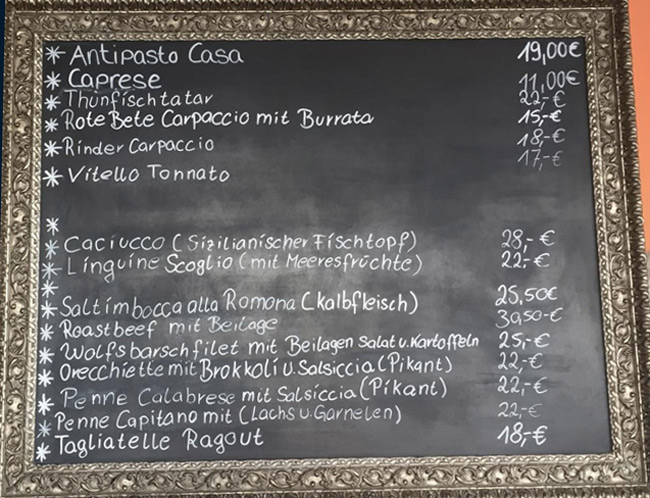 * Antipasto Casa 19,00€
* Caprese 11,00€
* Thunfischtatar 22,-€
* Rote Bete Carpaccio mit Burrata 15,-€
* Rinder Carpaccio 18,-€
* Vitello Tonnato 17,-€
*
* Caciucco (Sizilianischer Fischtopf) 28,-€
* Linguine Scoglio (mit Meeresfrüchte) 22,-€
*
* Saltimbocca alla Romona (Kalbfleisch) 25,50€
* Roastbeef mit Beilage 30,50-€
* Wolfsbarschfilet mit Beilagen Salat u. Kartoffeln 25,-€
* Orecchiette mit Brokkoli u. Salsiccia (Pikant) 22,-€
* Penne Calabrese mit Salsiccia (Pikant) 22,-€
* Penne Capitano mit (Lachs u. Garnelen) 22,-€
* Tagliatelle Ragout 18,-€